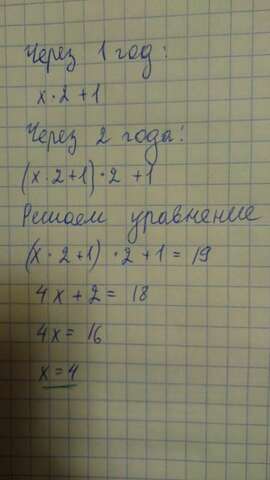 Через 1 год:
x·2+1
Через 2 года:
(x·2+1)·2 +1
Решаем уравнение
(x·2+1)·2+1=19
4x+2= 18
4x= 16
x=4